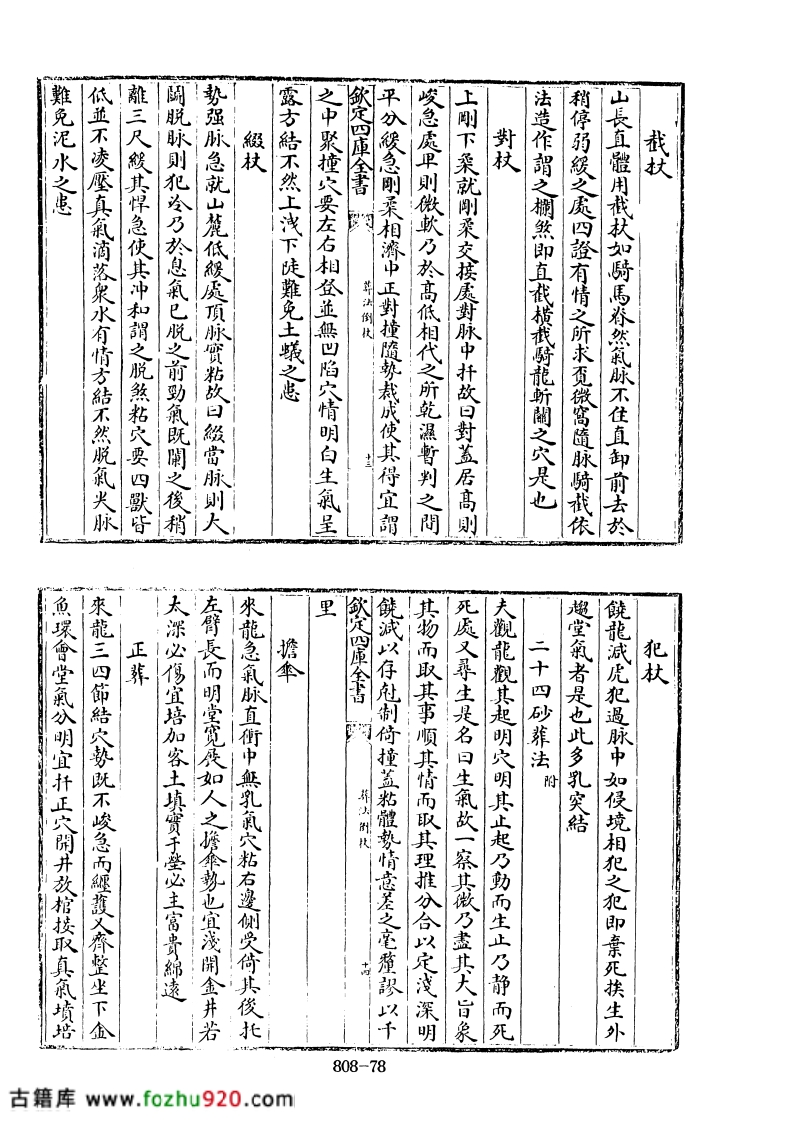 截杖
山長直體用截杖如騎馬脊然氣脉不住直卸前去於
稍停弱緩之處四證有情之所求覓微窩隨脉騎截依
法造作謂之攔煞即直截橫截騎龍斬關之穴是也
對杖
上剛下柔就剛柔交接處對脉中扦故曰對蓋居髙則
峻急處卑則微軟乃於髙低相代之所乾濕暫判之間
平分緩急剛柔相濟中正對撞隨勢裁成使其得宜謂
欽定四庫全書
葬法倒杖
十三
之中聚撞穴要左右相登並無凹陷穴情明白生氣呈
露方結不然上淺下陡難免土蟻之患
綴杖
勢强脉急就山麓低緩處頂脉實粘故曰綴當脉則大
鬭脱脉則犯冷乃於息氣已脱之前勁氣既闌之後稍
離三尺緩其悍急使其冲和謂之脱煞粘穴要四獸皆
低並不凌壓真氣滴落衆水有情方結不然脱氣失脉
難免泥水之患
犯杖
饒龍減虎犯過脉中如侵境相犯之犯即棄死挨生外
趨堂氣者是也此多乳突結
二十四砂葬法附
夫觀龍觀其起明穴明其止起乃動而生止乃静而死
死處又尋生是名曰生氣故一察其微乃盡其大旨象
其物而取其事順其情而取其理推分合以定淺深明
饒減以存尅制倚撞蓋粘體勢情意差之毫釐謬以千
欽定四庫全書
葬法倒杖
十四
里
擔傘
來龍急氣脉直衝中無乳氣穴粘右邊側受倚其後托
左臂長而明堂寛展如人之擔傘勢也宜淺開金井若
太深必傷宜培加客土填實于塋必主富貴綿遠
正葬
來龍三四節結穴勢既不峻急而纒䕶又齊整坐下金
魚環會堂氣分明宜扦正穴開井放棺接取真氣墳培
808-78
古籍库 www.fozhu920.com